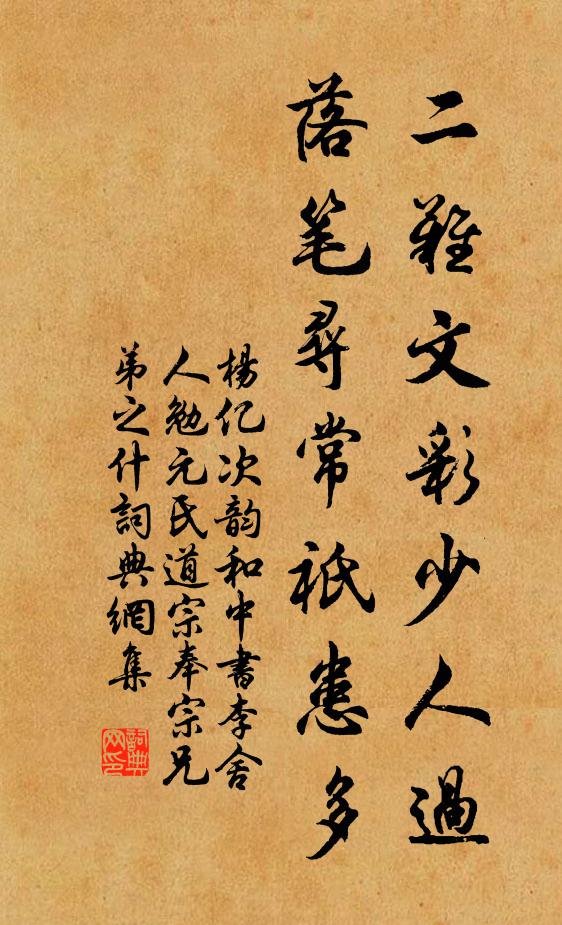 二难文彩少人過
落笔尋常祇患多
楊亿次韵和中書李舍
人勉元氏道宗奉宗兄
弟之什詞典網集
詞典网印